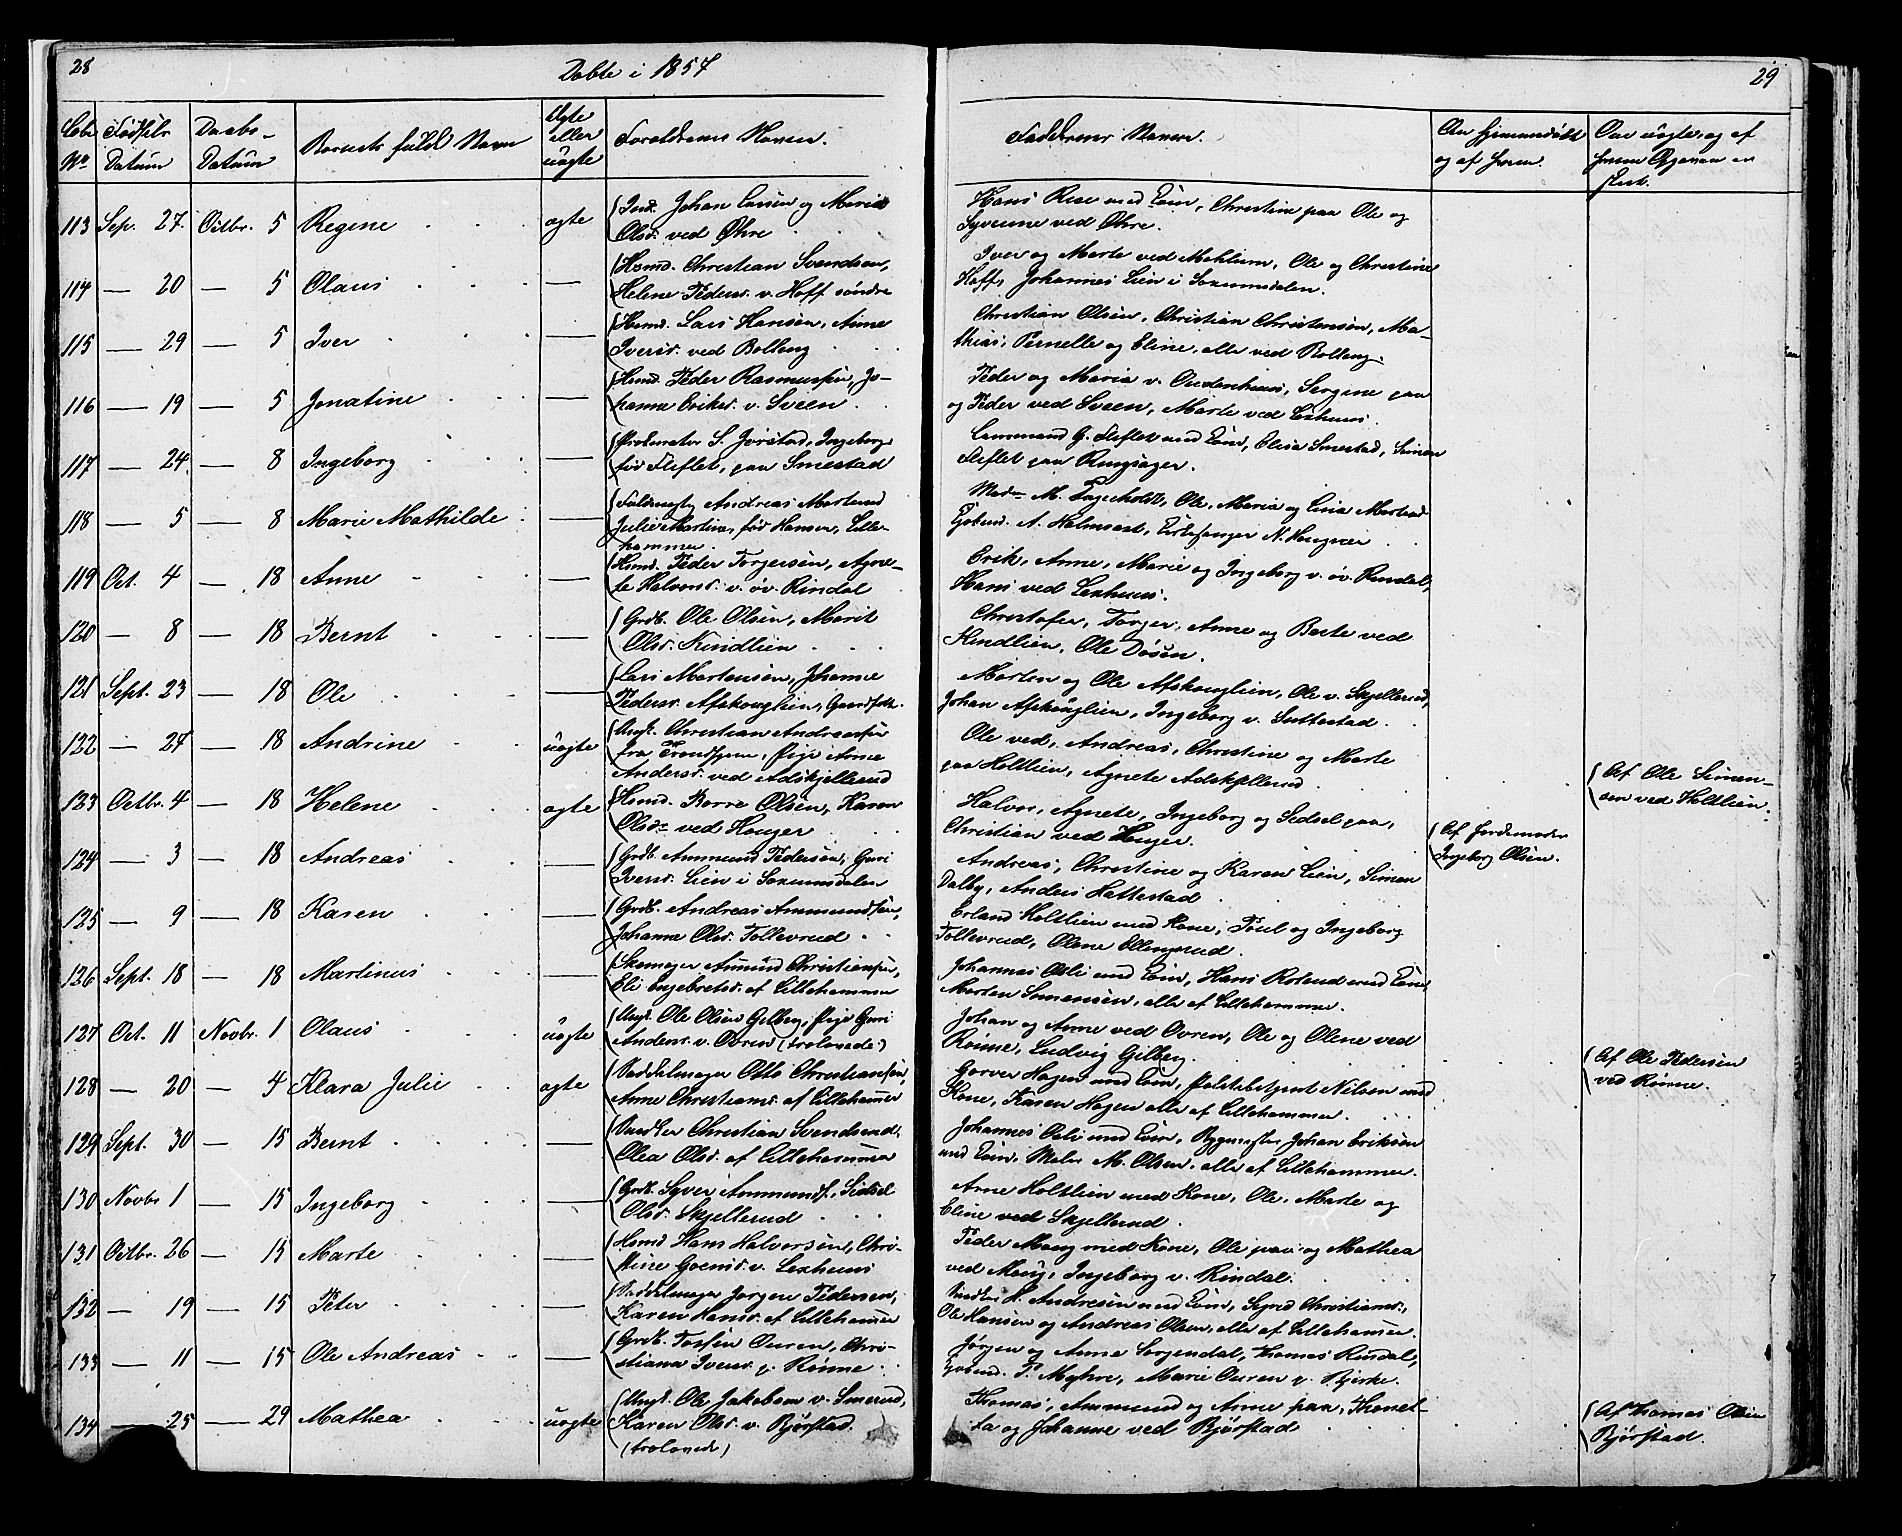 28
Døbte i 1857
Løbe Fødsels Daabs-
No. Datum Datum
Barnets fulde Navn
Ægte
eller
uægte
Forældrenes Navne.
113 Sep. 27. Octbr. 5 Regine ægte Ind. Johan Larsen og Marie
Olsd. ved Øhre
114 — 20 — 5 Olaus — Hsmd. Christian Svendsen,
Helene Pedersd. v. Hoff søndre
115 — 29 — 5 Iver — Hsmd. Lars Hansen, Anne
Iversd. ved Bolleng
116 — 19 — 5 Jonatine — Hsmd. Peder Rasmussen, Jo-
hanne Eriksd. v. Sveen
117 — 24 — 8 Ingeborg — Prokurator S. Jørstad, Ingeborg
fød Fliflet, paa Smestad
118 — 5 — 8 Marie Mathilde — Fuldmægtig Andreas
Julie Martine, fød Hansen, Lille-
hammer.
119 Oct. 4 — 18 Anne — Hsmd. Peder Torgersen, Agne-
te Halvorsd. v. øv. Rindal
120 — 8 — 18 Bernt — Grdb. Ole Olsen, Marit
Olsd. Kindlien
121 Sept. 23 — 18 Ole — Lars Mortensen, Johanne
Pedersd. Afskouglien, Gaardfolk.
122 — 24 — 18 Andrine uægte Ungk. Christian Andreassen
fra Trondhjem, Pige Anne
Andersd. ved Adskjellerud
123 Octbr. 4 — 18 Helene ægte Hsmd. Borre Olsen, Karen
Olsdr. ved Houger
124 — 3 — 18 Andreas — Grdb. Ammund Pedersen, Guri
Iversd. Lien i Saxumsdalen
125 — 9 — 18 Karen — Grdb. Andreas Ammundsen,
Johanne Olsd. Tollevrud
126 Sept. 18 — 18 Martinus — Skomager Amund Christiansen,
Eli Engebretsd. af Lillehammer
127 Oct. 11 Novbr. 1 Olaus uægte Ungk. Ole Olsen Gilberg, Pige Guri
Andersd. v. Ouren (trolovede.)
128 — 20 — 4 Klara Julie ægte Sadelmager Otto Christiansen,
Anne Christiansd. af Lillehammer
129 Sept. 30 — 15 Bernt — Snedker Christian Svendsen,
Olea Olsd. af Lillehammer
130 Novbr 1 — 15 Ingeborg — Grdb. Syver Ammunds., Sidsel
Olsd. Skjellerud
131 Octbr. 26 — 15 Marte — Hsmd Hans Halvorsen, Chri-
stine v. Lexhuus
132 — 19 — 15 Peter — Sadelmager Jørgen Pedersen,
Karen Hansd. af Lillehammer
133 — 11 — 15 Ole Andreas — Grdb. Ouren, Chri-
stiane Iversd. p. Rønne
134 — 25 — 29 Mathea uægte Ungk. Ole Jakobsen v. Smerud,
Karen Olsd. v. Bjørstad.
(trolovede)
29
Faddernes Navne.
Om hjemmedøbt
og af hvem.
Om uægte, og af
hvem Opgaven er
skeet.
Hans Rose med Køne, Christine paa Ole og
Syverine ved Øhre.
Iver og Marte ved Mehlum, Ole og Christine
Hoff, Johannes Lien i Saxumsdalen.
Christian Olsen, Christian Christensen, Ma-
thias, Pernelle og Eline, alle ved Bolleng.
Peder og Maria v. Sergine paa
og Peder ved Sveen, Marte ved Lexhuus.
Fliflet med Køne, Elise Smestad, Simen
Fliflet paa Ringsager.
Ole, Maria og
Erik, Anne, Marie og Ingeborg v. øv. Rindal,
Hans ved Lexhuus.
Christofer, Torger, Anne og Berte ved
Kindlien, Ole Døsen.
Morten og Ole Afskouglien, Ole v. Skjellerud,
Johan Afskouglien, Ingeborg v. Suttestad.
Ole ved, Andreas, Christine og Marte
paa Holtlien, Agnete Adskjellerud.
Af Ole Simen-
sen ved Holtlien.
Halvor, Agnete, Ingeborg og Sidsel paa,
Christian ved Houger.
Af Jordemoder
Ingeborg Olsen.
Andreas, Christine og Karen Lien, Simen
Dalby, Anders Hattestad
Erland Holtlien med Kone, Poul og Ingeborg
Tollevrud, Olene Ellingsrud.
Johannes Oeli med Køne, Hans med Køne
Morten Simensen, alle af Lillehammer.
Johan og Anne ved Ouren, Ole og Olene ved
Rønne, Ludvig Gilberg.
Af Ole Pedersen
ved Rønne.
Garver Hagen med Køne, Politibetjent Nilsen med
Kone, Karen Hagen alle af Lillehammer.
Johannes Oeli med Køne, Bygmester Johan Eriksen
med Køne, Maler M. Olsen, alle af Lillehammer.
Arne Holtlien med Kone, Ole, Marte og
Eline ved Skjellerud.
Peder Moug med Kone, Ole paa og Mathea
ved Moug, Ingeborg v. Rindal.
Snedker H. Andresen med Køne, Sigrid Christiansd.,
Ole Hansen og Andreas Olsen, alle af Lillehammer.
Jørgen og Anne Sorgendal, Thomas Rindal,
P. Myhre, Marie Ouren p. Bjerke.
Thomas, Ammund og Anne paa, Thonet-
ta og Johanne ved Bjørstad
Af Thomas Olsen
Bjørstad.